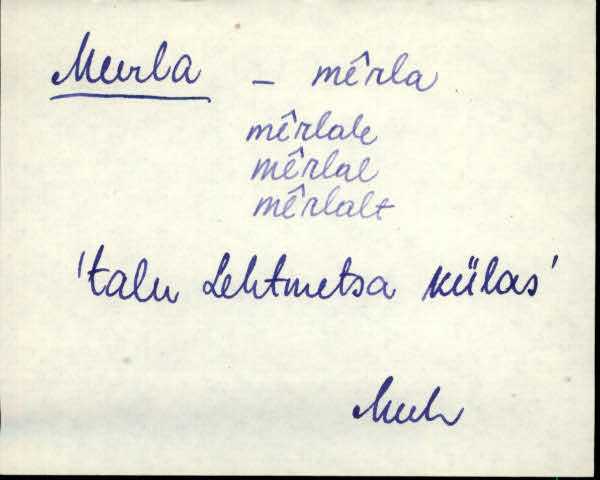 Murla – mêrla
mêrlale
mêrlal
mêrlalt
'talu Lehtmetsa külas'
Muh